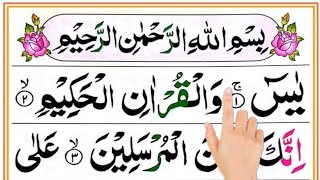 بِسْمِ اللهِ الرَّحْمٰنِ الرَّحِيْمِ
يٰسٓ ۚ ﴿١﴾ وَالْقُرْاٰنِ الْحَكِيْمِ ۙ ﴿٢﴾
اِنَّكَ الْمُرْسَلِيْنَ ۙ ﴿٣﴾ عَلٰى